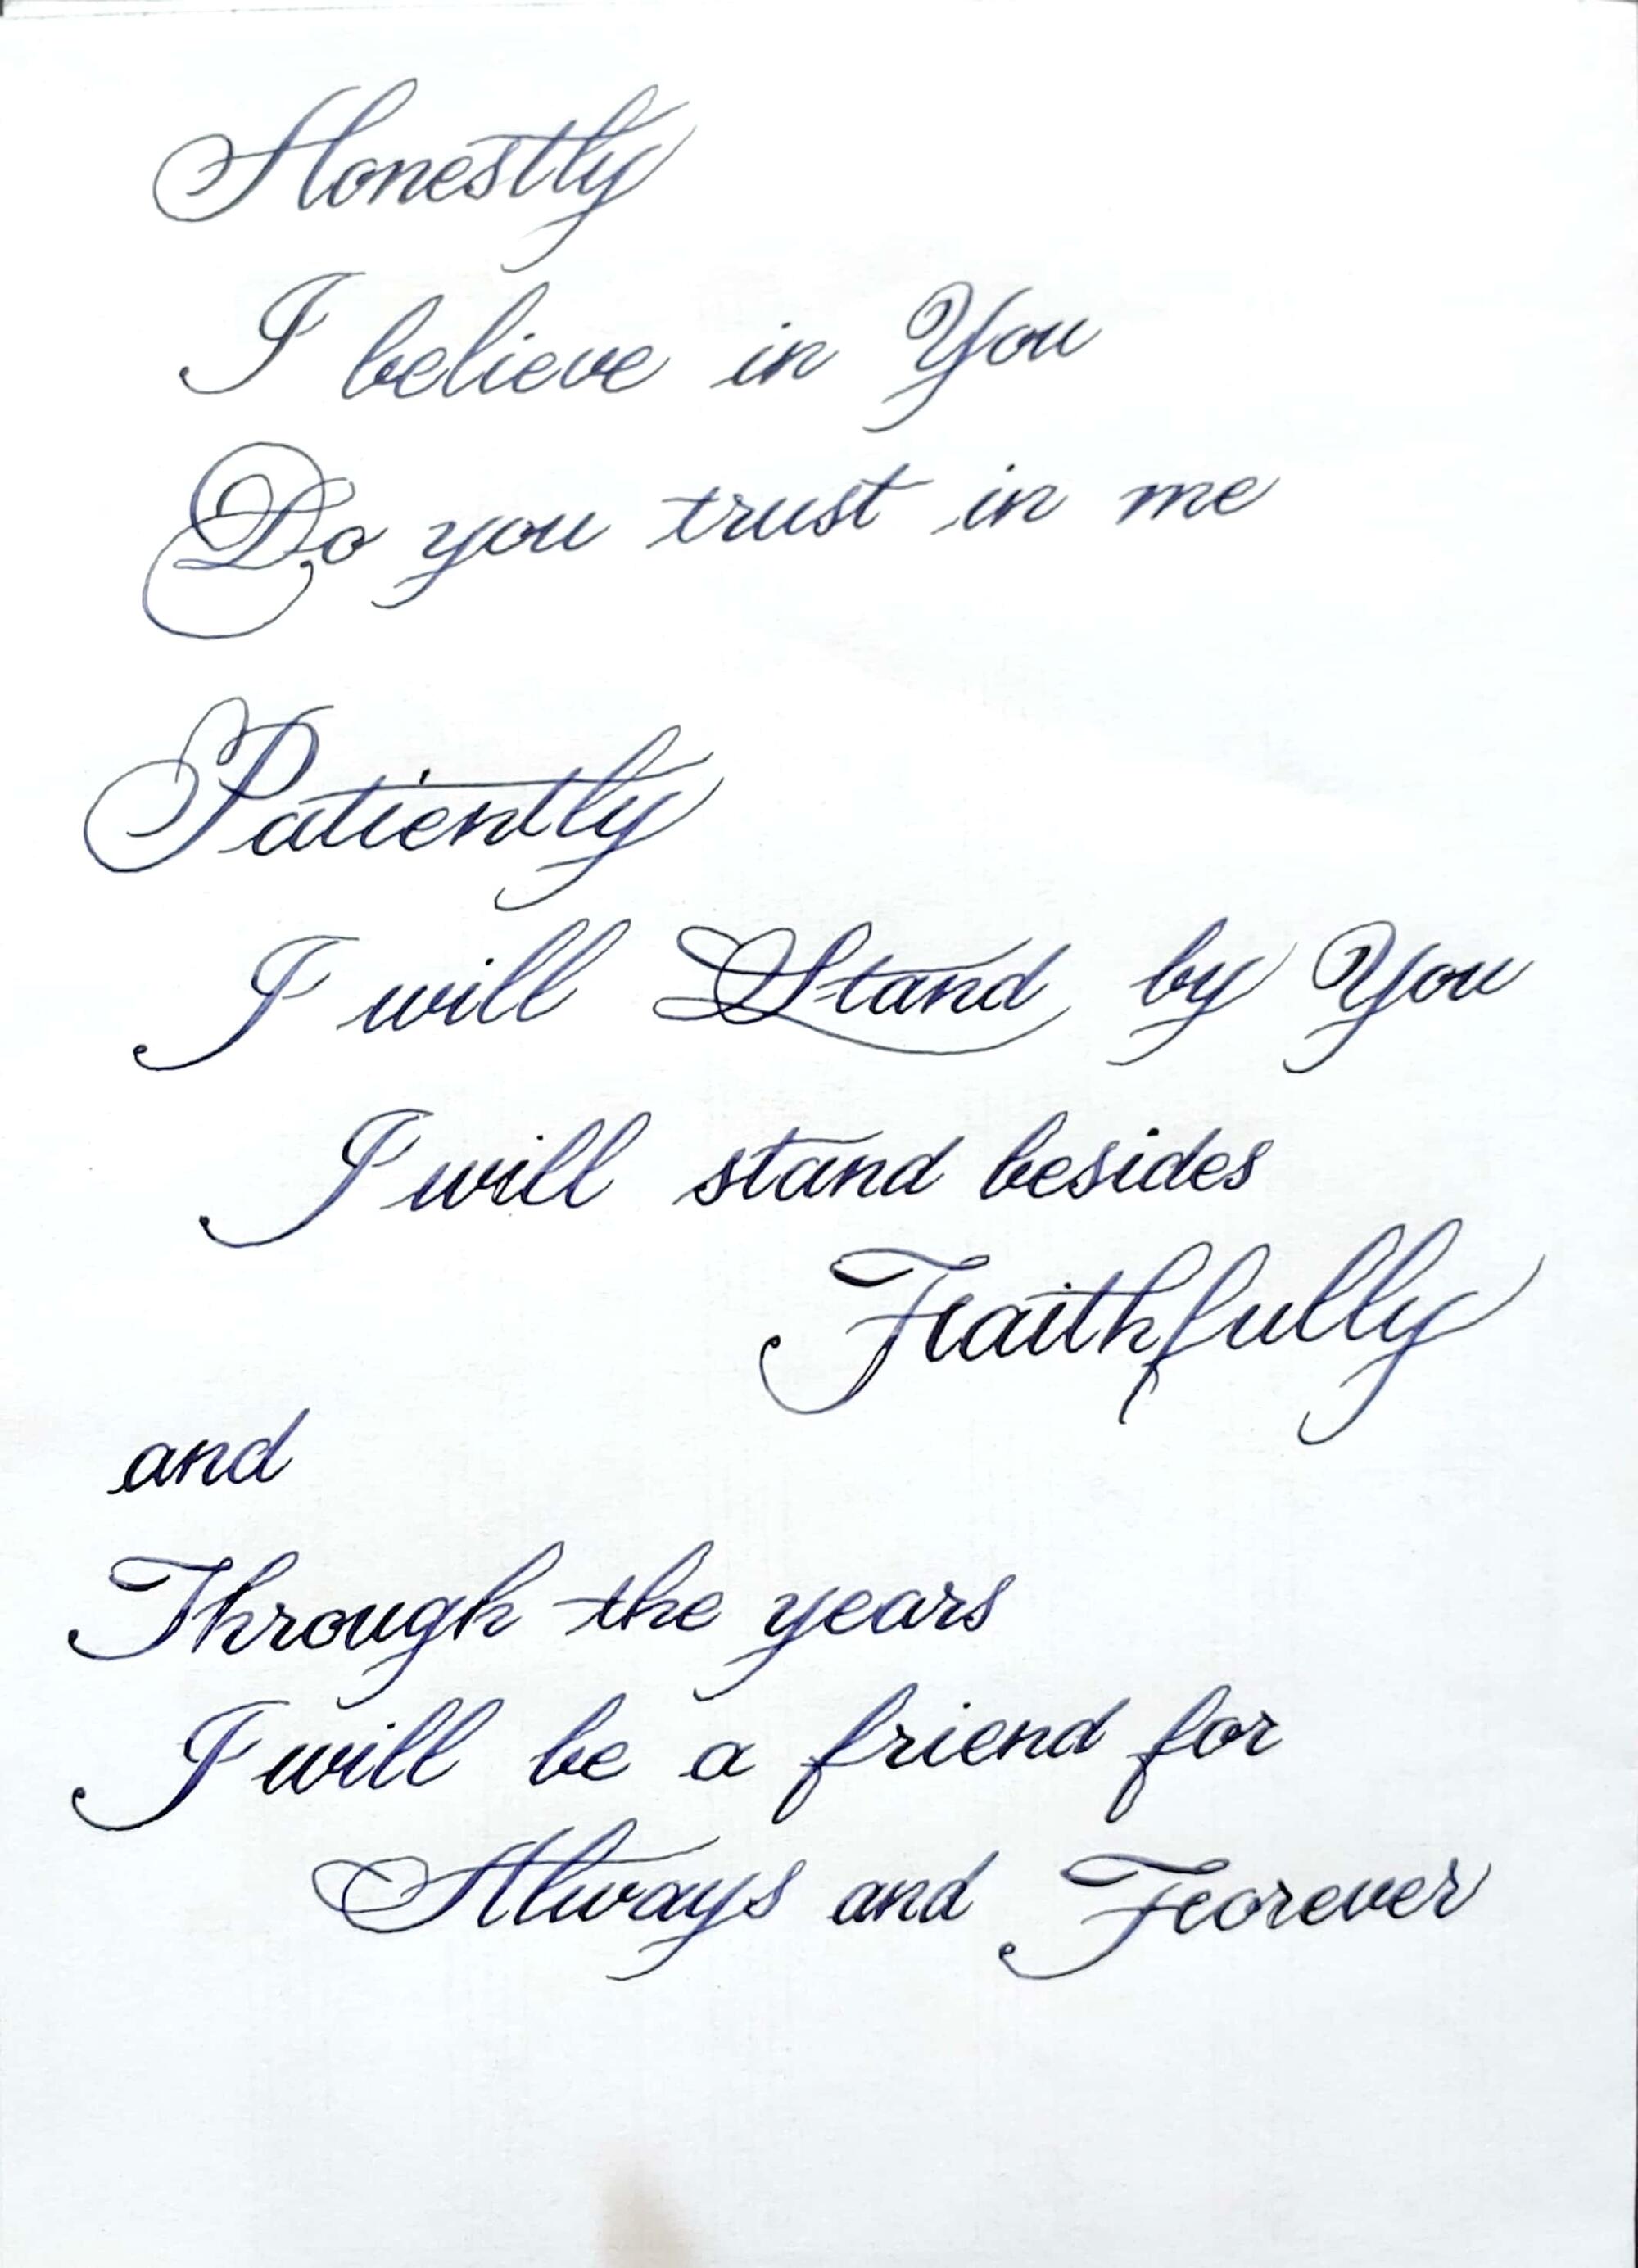 Honestly
I believe in You
Do you trust in me
Patiently
I will Stand by You
I will stand besides
Faithfully
and
Through the years
I will be a friend for
Always and Forever